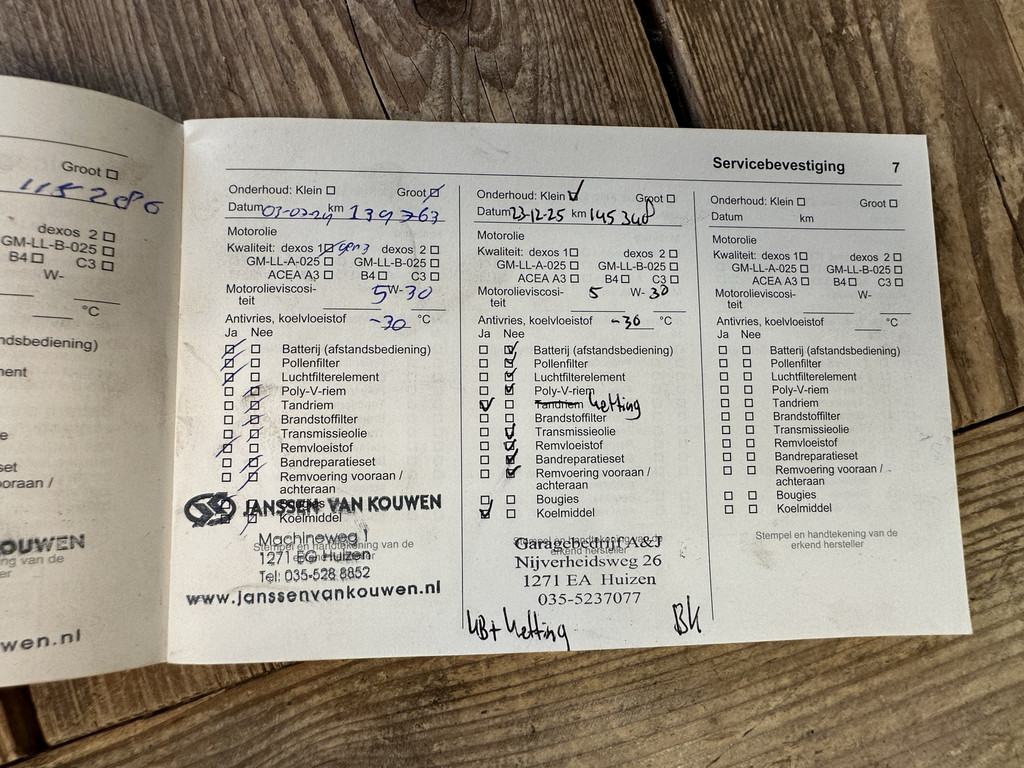 Groot
115286
dexos 2
GM-LL-B-025
B4 C3
W-
°C
ndsbediening)
ment
e
set
ooraan /
OUWEN
ng van de
er
wen.nl
Servicebevestiging 7
Onderhoud: Klein Groot
Datum km 139763
Motorolie
Kwaliteit: dexos 1 gen 3 dexos 2
GM-LL-A-025 GM-LL-B-025
ACEA A3 B4 C3
Motorolieviscosi-
teit 5 W- 30
Antivries, koelvloeistof -30 °C
Ja Nee
Batterij (afstandsbediening)
Pollenfilter
Luchtfilterelement
Poly-V-riem
Tandriem
Brandstoffilter
Transmissieolie
Remvloeistof
Bandreparatieset
Remvoering vooraan /
achteraan
Bougies
JANSSEN VAN KOUWEN
Koelmiddel
Machineweg 1
Stempel en handtekening van de
1271 EG Huizen
erkend hersteller
Tel: 035-528 8852
www.janssenvankouwen.nl
Onderhoud: Klein Groot
Datum 23-12-25 km 145348
Motorolie
Kwaliteit: dexos 1 dexos 2
GM-LL-A-025 GM-LL-B-025
ACEA A3 B4 C3
Motorolieviscosi-
teit 5 W- 30
Antivries, koelvloeistof -30 °C
Ja Nee
Batterij (afstandsbediening)
Pollenfilter
Luchtfilterelement
Poly-V-riem
Tandriem ketting
Brandstoffilter
Transmissieolie
Remvloeistof
Bandreparatieset
Remvoering vooraan /
achteraan
Bougies
Koelmiddel
Stempel en handtekening van de
Garagebedrijf A&J
erkend hersteller
Nijverheidsweg 26
1271 EA Huizen
035-5237077
KB+ ketting BK
Onderhoud: Klein Groot
Datum km
Motorolie
Kwaliteit: dexos 1 dexos 2
GM-LL-A-025 GM-LL-B-025
ACEA A3 B4 C3
Motorolieviscosi-
teit W-
Antivries, koelvloeistof °C
Ja Nee
Batterij (afstandsbediening)
Pollenfilter
Luchtfilterelement
Poly-V-riem
Tandriem
Brandstoffilter
Transmissieolie
Remvloeistof
Bandreparatieset
Remvoering vooraan /
achteraan
Bougies
Koelmiddel
Stempel en handtekening van de
erkend hersteller